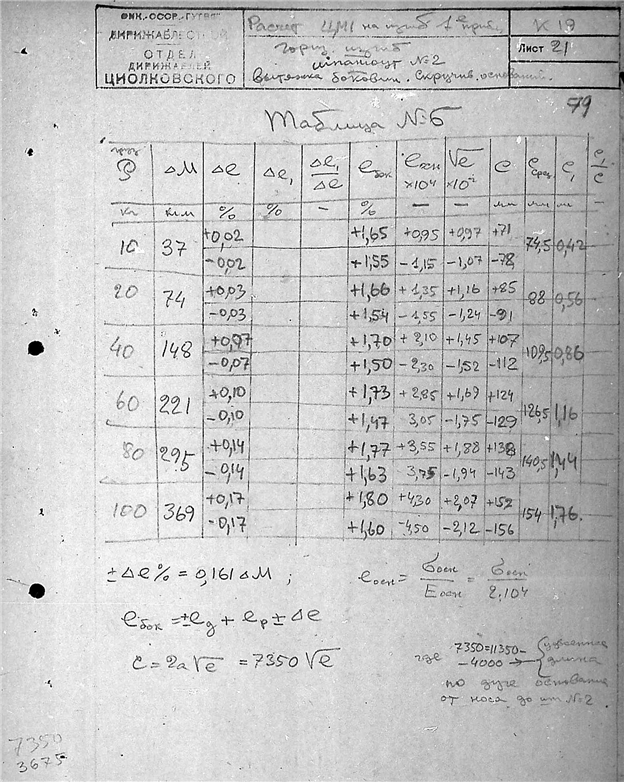 ДИРИЖАБЛЕСТРОЙ
ОТДЕЛ
ДИРИЖАБЛЕЙ
ЦИОЛКОВСКОГО
Расчет ЦМ1 на изгиб 1е приб.
гориз. изгиб
шпангоут №2
Вытяжка боковин. Скручив. оснований.
К 19
Лист 21
79
Таблица №6
P ΔM Δe Δe₁ Δe₁/Δe eбок eосн ×10⁴ √e ×10⁻² C Cсред C₁
кг кгм % % – % – – мм мм м –
10 37 +0,02 +1,65 +0,95 +0,97 +71 74,5 0,42
-0,02 +1,55 -1,15 -1,07 -78
20 74 +0,03 +1,66 +1,35 +1,16 +85 88 0,56
-0,03 +1,54 -1,55 -1,24 -91
40 148 +0,07 +1,70 +2,10 +1,45 +107 109,5 0,86
-0,07 +1,50 -2,30 -1,52 -112
60 221 +0,10 +1,73 +2,85 +1,69 +124 126,5 1,16
-0,10 +1,47 3,05 -1,75 -129
80 295 +0,14 +1,77 +3,55 +1,88 +138 140,5 1,44
-0,14 +1,63 3,75 -1,94 -143
100 369 +0,17 +1,80 +4,30 +2,07 +152 154 1,76
-0,17 +1,60 -4,50 -2,12 -156
±Δe% = 0,161 ΔM ; eосн = σосн/Eосн = σосн/2.10⁴
eбок = ±eg + ep ± Δe
C = 2a√e = 7350 √e
где 7350=11350-
-4000 → удвоенная
длина
по дуге основания
от носа до шп №2
7350
3675